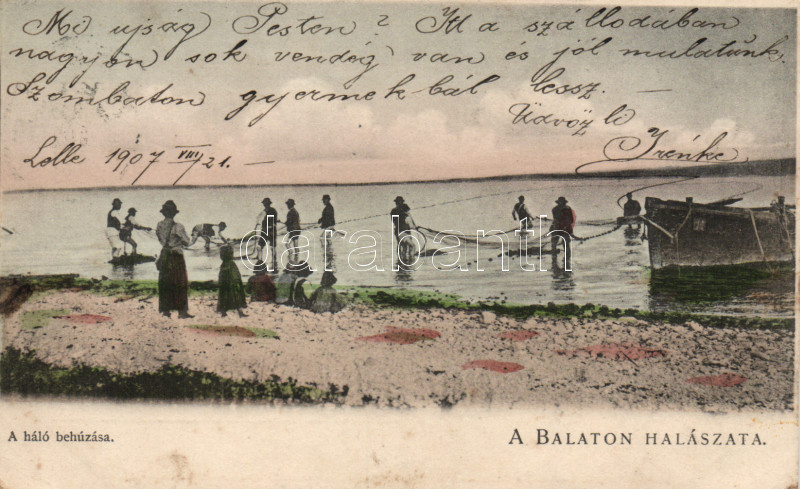 Mi ujság Pesten? Itt a szállodában
nagyon sok vendég van és jól mulatunk.
Szombaton gyermek-bál lesz. —
Üdvözli
Irénke
Lelle 1907 VIII/21. —
darabanth
A háló behúzása.
A BALATON HALÁSZATA.